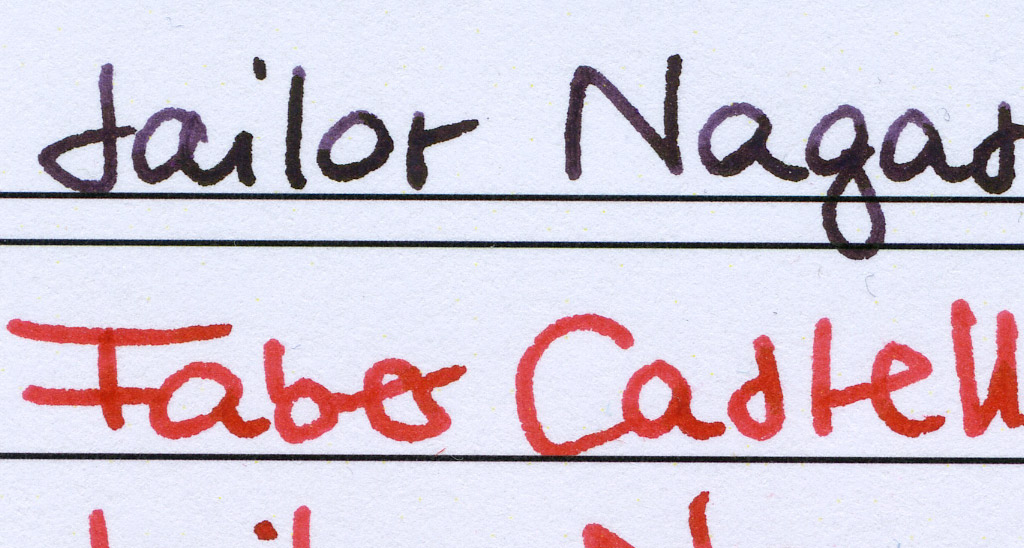 Sailor Nagas
Faber Castell